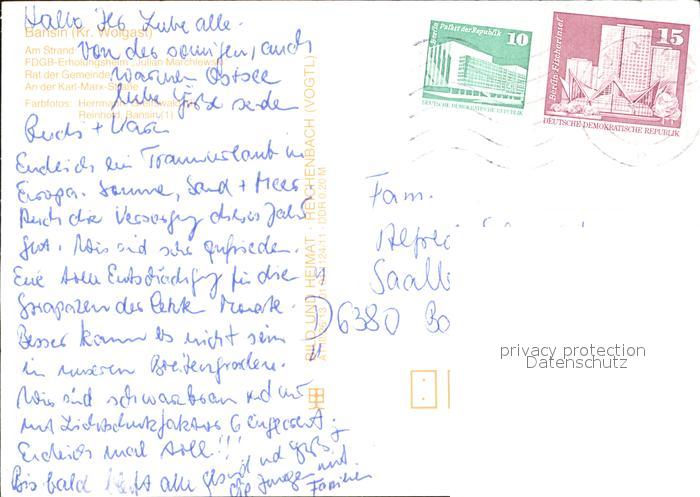 Hallo Ihr Lieben alle.
Bansin (Kr. Wolgast)
von der sonnigen, auch
Am Strand
FDGB-Erholungsheim "Julian Marchlewski"
warmen Ostsee
Rat der Gemeinde
An der Karl-Marx-Straße
liebe Grüße senden
Farbfotos:
Reinhold, Bansin (1)
Endlich ein Traumurlaub in
Europa. Sonne, Sand + Meer
Auch die Versorgung dieses Jahr
gut. Wir sind sehr zufrieden.
Eine tolle Entschädigung für die
Strapazen der letzten Monate.
Besser kann es nicht sein
in unseren Breitengraden.
Wir sind schwarzbraun und nur
mit Lichtschutzfaktor 6 eingecremt.
Endlich mal toll!!!
Bis bald bleibt alle gesund und grüßt
die Jungen mit
Familien
BILD UND HEIMAT · REICHENBACH (VOGTL)
DDR 0,20 M
Berlin Palast der Republik
10
DEUTSCHE DEMOKRATISCHE REPUBLIK
Berlin Fischerinsel
15
DEUTSCHE DEMOKRATISCHE REPUBLIK
Fam.
Saall
6380 Bo
privacy protection
Datenschutz